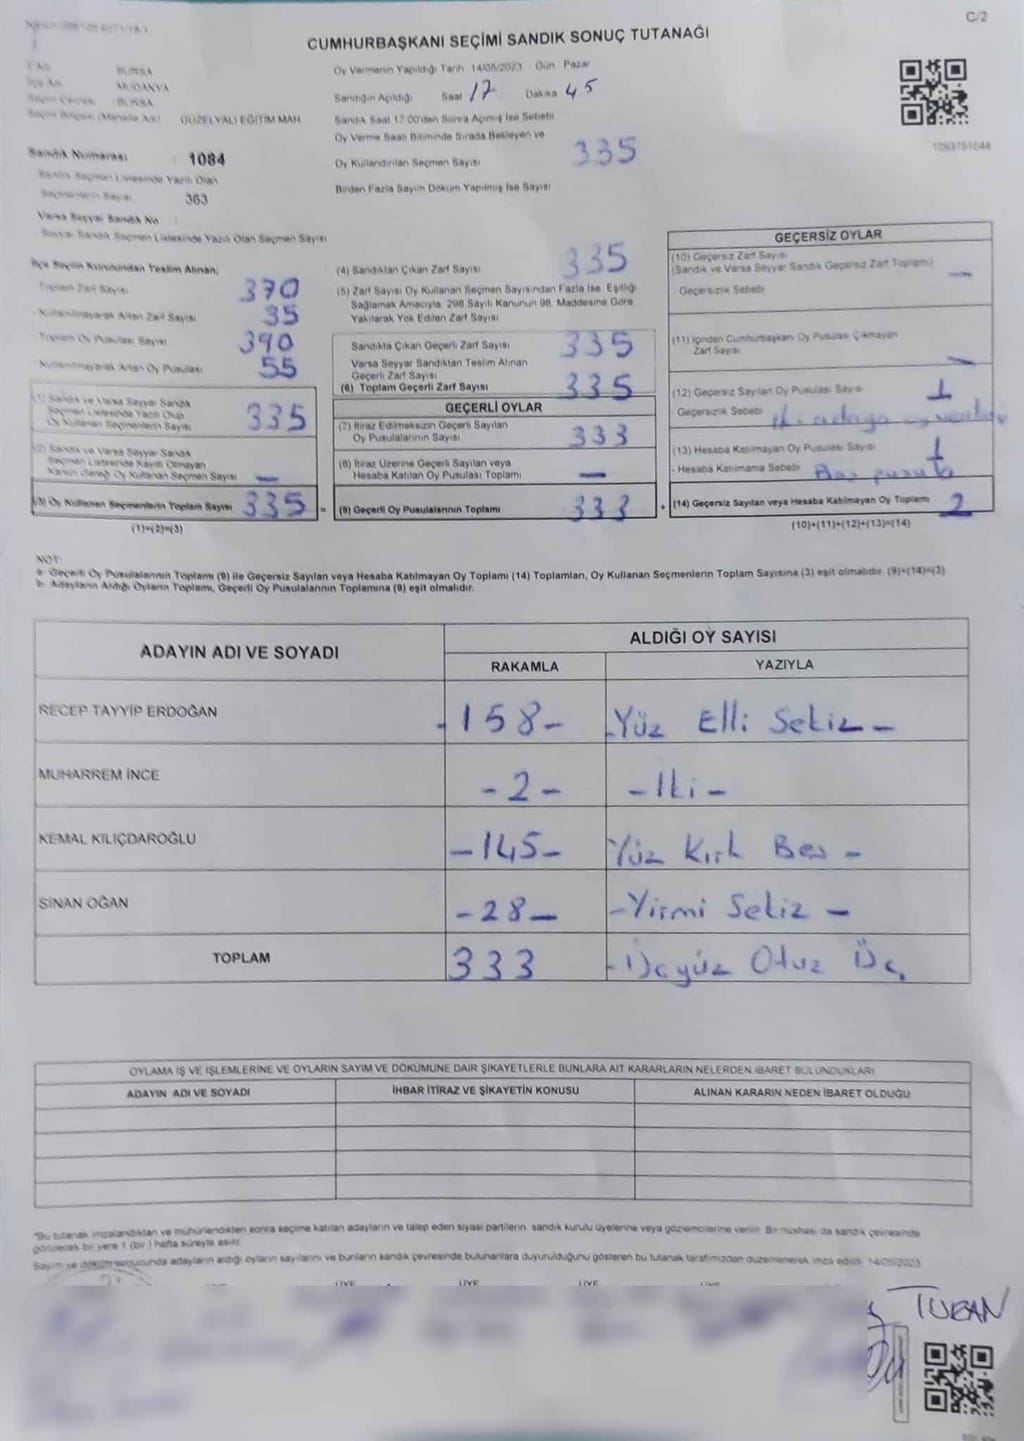 C/2
CUMHURBAŞKANI SEÇİMİ SANDIK SONUÇ TUTANAĞI
İl Adı : BURSA
İlçe Adı : MUDANYA
Seçim Çevresi : BURSA
Seçim Bölgesi (Mahalle Adı) : GÜZELYALI EĞİTİM MAH
Oy Vermenin Yapıldığı Tarih 14/05/2023 Gün Pazar
Sandığın Açıldığı Saat 17 Dakika 45
Sandık Saat 17:00'den Sonra Açılmış İse Sebebi
Oy Verme Saati Bitiminde Sırada Bekleyen ve
Oy Kullandırılan Seçmen Sayısı 335
Birden Fazla Sayım Döküm Yapılmış İse Sayısı
1093751044
Sandık Numarası : 1084
Sandık Seçmen Listesinde Yazılı Olan
Seçmenlerin Sayısı : 363
Varsa Seyyar Sandık No :
Seyyar Sandık Seçmen Listesinde Yazılı Olan Seçmen Sayısı
İlçe Seçim Kurulundan Teslim Alınan;
Toplam Zarf Sayısı 370
Kullanılmayarak Artan Zarf Sayısı 35
Toplam Oy Pusulası Sayısı 390
Kullanılmayarak Artan Oy Pusulası 55
(1) Sandık ve Varsa Seyyar Sandık
Seçmen Listesinde Yazılı Olup
Oy Kullanan Seçmenlerin Sayısı 335
(2) Sandık ve Varsa Seyyar Sandık
Seçmen Listesinde Kayıtlı Olmayan
Kanun Gereği Oy Kullanan Seçmen Sayısı —
(3) Oy Kullanan Seçmenlerin Toplam Sayısı 335 =
(1)+(2)=(3)
(4) Sandıktan Çıkan Zarf Sayısı 335
(5) Zarf Sayısı Oy Kullanan Seçmen Sayısından Fazla İse, Eşitliği
Sağlamak Amacıyla, 298 Sayılı Kanunun 98. Maddesine Göre
Yakılarak Yok Edilen Zarf Sayısı
Sandıkta Çıkan Geçerli Zarf Sayısı 335
Varsa Seyyar Sandıktan Teslim Alınan
Geçerli Zarf Sayısı
(6) Toplam Geçerli Zarf Sayısı 335
GEÇERLİ OYLAR
(7) İtiraz Edilmeksizin Geçerli Sayılan
Oy Pusulalarının Sayısı 333
(8) İtiraz Üzerine Geçerli Sayılan veya
Hesaba Katılan Oy Pusulası Toplamı —
(9) Geçerli Oy Pusulalarının Toplamı 333 +
GEÇERSİZ OYLAR
(10) Geçersiz Zarf Sayısı
(Sandık ve Varsa Seyyar Sandık Geçersiz Zarf Toplamı) —
- Geçersizlik Sebebi
(11) İçinden Cumhurbaşkanı Oy Pusulası Çıkmayan
Zarf Sayısı —
(12) Geçersiz Sayılan Oy Pusulası Sayısı 1
- Geçersizlik Sebebi İki adaya
(13) Hesaba Katılmayan Oy Pusulası Sayısı 1
- Hesaba Katılmama Sebebi Boş pusula
(14) Geçersiz Sayılan veya Hesaba Katılmayan Oy Toplamı 2
(10)+(11)+(12)+(13)=(14)
NOT:
a- Geçerli Oy Pusulalarının Toplamı (9) ile Geçersiz Sayılan veya Hesaba Katılmayan Oy Toplamı (14) Toplamları, Oy Kullanan Seçmenlerin Toplam Sayısına (3) eşit olmalıdır. (9)+(14)=(3)
b- Adayların Aldığı Oyların Toplamı, Geçerli Oy Pusulalarının Toplamına (9) eşit olmalıdır.
ADAYIN ADI VE SOYADI
ALDIĞI OY SAYISI
RAKAMLA YAZIYLA
RECEP TAYYİP ERDOĞAN -158- -Yüz Elli Sekiz-
MUHARREM İNCE -2- -İki-
KEMAL KILIÇDAROĞLU -145- Yüz Kırk Beş -
SİNAN OĞAN -28- -Yirmi Sekiz-
TOPLAM 333 -Üçyüz Otuz Üç
OYLAMA İŞ VE İŞLEMLERİNE VE OYLARIN SAYIM VE DÖKÜMÜNE DAİR ŞİKAYETLERLE BUNLARA AİT KARARLARIN NELERDEN İBARET BULUNDUKLARI
ADAYIN ADI VE SOYADI İHBAR İTİRAZ VE ŞİKAYETİN KONUSU ALINAN KARARIN NEDEN İBARET OLDUĞU
"Bu tutanak imzalandıktan ve mühürlendikten sonra seçime katılan adayların ve talep eden siyasi partilerin, sandık kurulu üyelerine veya gözlemcilerine verilir. Bir nüshası da sandık çevresinde
görülecek bir yere 1 (bir) hafta süreyle asılır.
Sayım ve döküm sonucunda adayların aldığı oyların sayılarını ve bunların sandık çevresinde bulunanlara duyurulduğunu gösteren bu tutanak tarafımızdan düzenlenerek imza edildi. 14/05/2023
ÜYE ÜYE ÜYE ÜYE